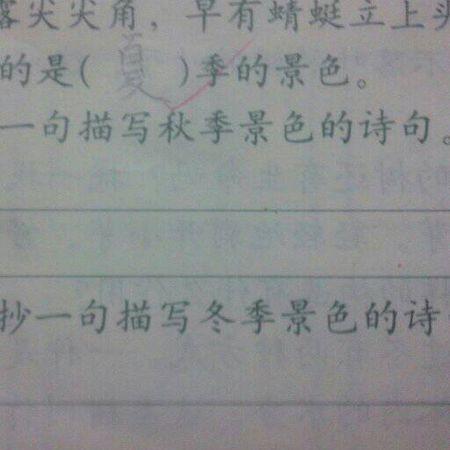 露尖尖角，早有蜻蜓立上头
的是(夏)季的景色。
一句描写秋季景色的诗句。
抄一句描写冬季景色的诗